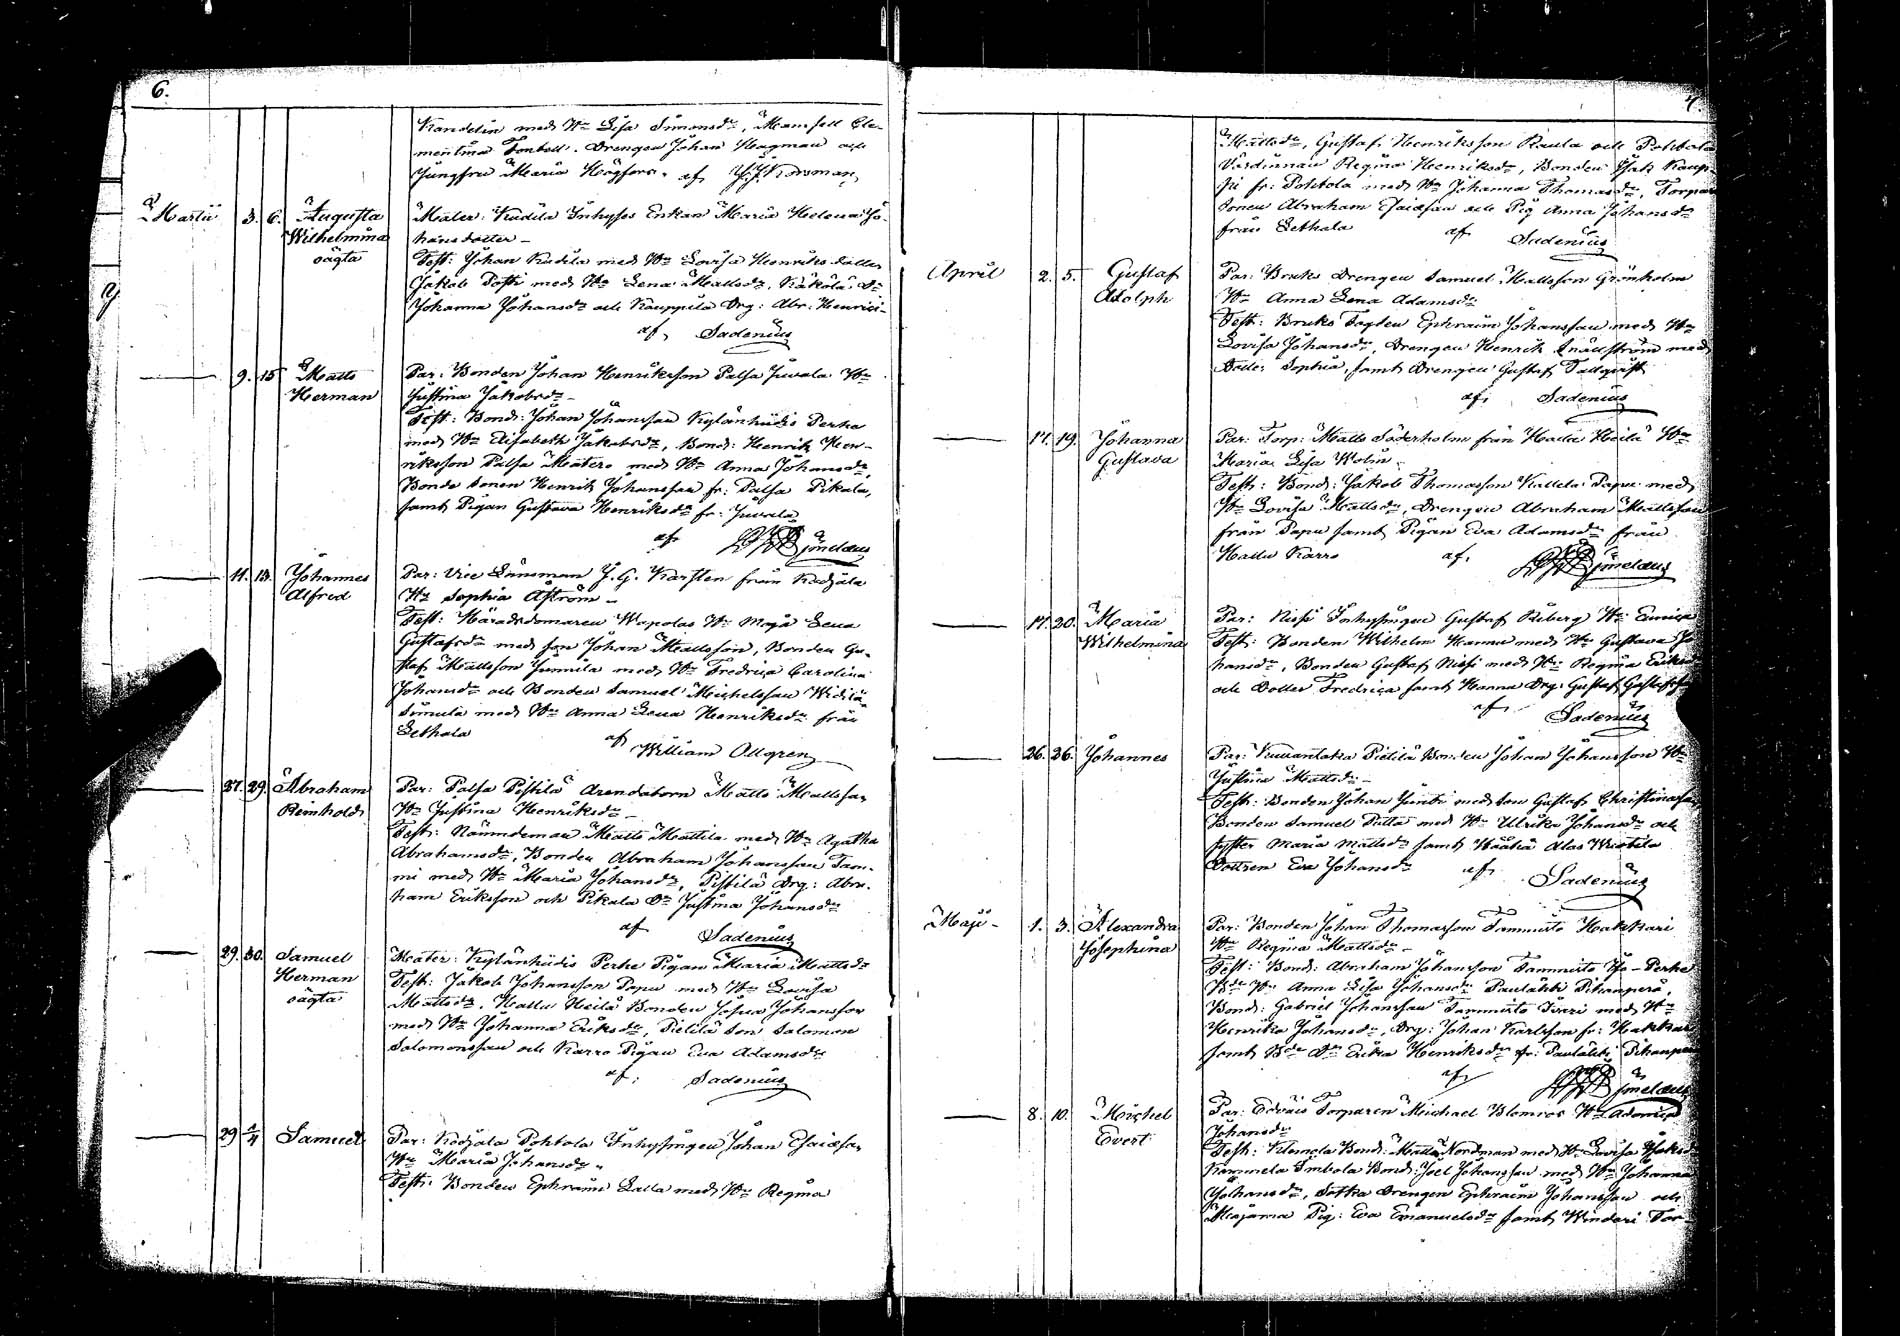 6.
Kandelin med H. Lisa Simonsdr, Mamsell Cle-
mentina Fontell. Drengen Johan Hagman och
Jungfru Maria Högfors. af
Martii 3. 6. Augusta Wilhelmina oägta
Mater: Kudila Inhyses Enkan Maria Helena Jo-
hansdotter
Test: Johan Kudila med Hu Lovisa Henriksdotter
Jakob Potti med Hu Lena Mattsdr, Kåkola Dr
Johanna Johansdr och Kauppila Drg: Abr. Henrici-
af Sadenius
9. 15 Matts Herman
Par: Bonden Johan Henriksson Palsa Juvala Hu
Justina Jakobsdr
Test: Bond: Johan Johansson Kylänhiidis Perha
med Hu Elisabeth Jakobsdr, Bond: Henrik Hen-
riksson Palsa Matero med Hu Anna Johansdr
Bonde Sonen Henrik Johansson fr: Palsa Pikala,
samt Pigan Gustava Henriksdr fr: Juvala
af
11. 13. Johannes Alfred
Par: Vice Länsman J. G. Karsten från Kodjala
Hu Sophia Åström
Test: Häradsdomaren Wapolas Hu Maja Lena
Gustafsdr med son Johan Mattsson, Bonden Gu-
staf Mattsson Jennila med Hu Fredrica Carolina
Johansdr och Bonden Samuel Michelsson Widilä
Simula med Hu Anna Lena Henriksdr från
Lethala
af William Ollgren
27. 29. Abraham Reinhold
Par: Palsa Pistilä Arendatorn Matts Mattsson
Hu Justina Henriksdr
Test: Nämndeman Matts Mattila med Hu Agatha
Abrahamsdr, Bonden Abraham Johansson Tam-
mi med Hu Maria Johansdr, Pistilä Drg: Abra-
ham Eriksson och Pikala Dr Justina Johansdr
af Sadenius
29. 30. Samuel Herman oägta
Mater: Kylänhiidis Perhe Pigan Maria Mattsdr
Test: Jakob Johansson Papu med Hu Lovisa
Mattsdr, Hallu Heilä Bonden Josua Johansson
med Hu Johanna Eriksdr, Pietilä Son Salomon
Salomonsson och Karro Pigan Eva Adamsdr
af: Sadenius
29 1/4 Samuel
Par: Kodjala Pohtola Inhysingen Johan Esaiæson
Hu Maria Johansdr
Test: Bonden Ephraim Lalla med Hu Regina
7.
Mattsdr, Gustaf Henriksson Raula och Pohtola
Värdinnan Regina Henriksdr, Bonden Isak Kaup-
pi fr: Pohtola med Hu Johanna Thomasdr, Torpar
Sonen Abraham Esaiæson och Pig Anna Johansdr
från Lethala af Sadenius
April 2. 5. Gustaf Adolph
Par: Bruks Drengen Samuel Mattsson Grönholm
Hu Anna Lena Adamsdr
Test: Bruks Fogten Ephraim Johansson med Hu
Lovisa Johansdr, Drengen Henrik Snällström med
Dotter Sophia, samt Drengen Gustaf Tallqvist
af: Sadenius
17. 19. Johanna Gustava
Par: Torp: Matts Söderholm från Hallu Heilä Hu
Maria Lisa Wolin
Test: Bond: Jakob Thomasson Kallela Papu med
Hu Lovisa Mattsdr, Drengen Abraham Mattsson
från Papu samt Pigan Eva Adamsdr från
Hallu Karro af.
17. 20. Maria Wilhelmina
Par: Nissi Inhysingen Gustaf Riberg Hu Eunica
Test: Bonden Wilhelm Hannu med Hu Gustava Jo
hansdr, Bonden Gustaf Nissi med Hu Regina Eriksdr
och Dotter Fredrica samt Hannu Drg: Gustaf Gustafss
af Sadenius
26. 26. Johannes
Par: Kuivanlaka Pietilä Bonden Johan Johansson Hu
Justina Mattsdr
Test: Bonden Johan Junti med son Gustaf Christiansson
Bonden Samuel Putta med Hu Ulrika Johansdr och
syster Maria Mattsdr samt
Dottren Eva Johansdr af Sadenius
Maji 1. 3. Alexandra Josephina
Par: Bonden Johan Thomasson Tammisto Hakkari
Hu Regina Mattsdr
Test: Bond: Abraham Johansson Tammisto Iso-Perhe
Hu Anna Lisa Johansdr Paulähti Pihanperä,
Bond: Gabriel Johansson Tammisto Iivari med Hu
Henrika Johansdr, Drg: Johan Karlsson fr: Hakkari
samt Bde Dr Erika Henriksdr fr: Paulähti Pihanperä
af
8. 10. Michel Evert
Par: Edväis Torparen Michael Blomros Hu Adamina
Johansdr
Test: Klemela Bond: Matts Nordman med Hu Lovisa Isaksdr
Kammela Imbola Bond: Joel Johansson med Hu Johanna
Johansdr, Sotka Drengen Ephraim Johansson och
Majama Pig: Eva Emanuelsdr samt Windari Tor-